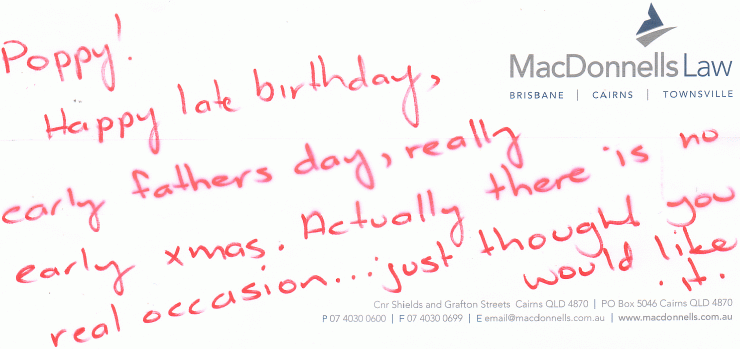 Poppy!
MacDonnells Law
BRISBANE | CAIRNS | TOWNSVILLE
Happy late birthday,
early fathers day, really
early xmas. Actually there is no
real occasion...just thought you
would like it.
Cnr Shields and Grafton Streets Cairns QLD 4870 | PO Box 5046 Cairns QLD 4870
P 07 4030 0600 | F 07 4030 0699 | E email@macdonnells.com.au | www.macdonnells.com.au